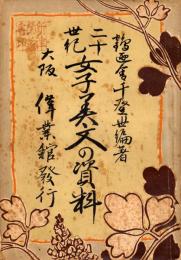 千登世編著
二十世紀
女子美文の資料
大阪 偉業館發行